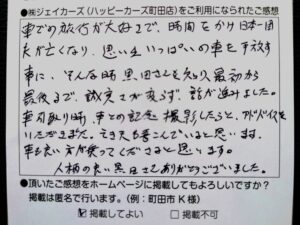 ●㈱ジェイカーズ(ハッピーカーズ町田店)をご利用になられたご感想
車での旅行が大好きで、時間をかけ日本一周
夫が亡くなり、思い出いっぱいの車を手放す
事に、そんな時、黒田さんを知り、最初から
最後まで、誠実さが変らず、話が進みました。
車引取り時、車との記念撮影したらと、アドバイスを
いただきました。 夫も喜んでいると思います。
車も良い方が乗ってくださると思います。
人柄の良い黒田さんありがとうございました。
●頂いたご感想をホームページに掲載してもよろしいですか?
掲載は匿名で行います。(例:町田市 K 様)
☑掲載してよい □掲載不可